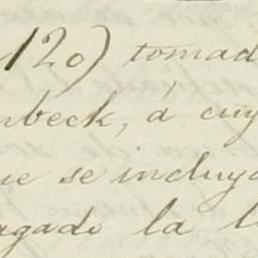 120) tomad
nbeck, á cuy
ue se incluya
agado la l